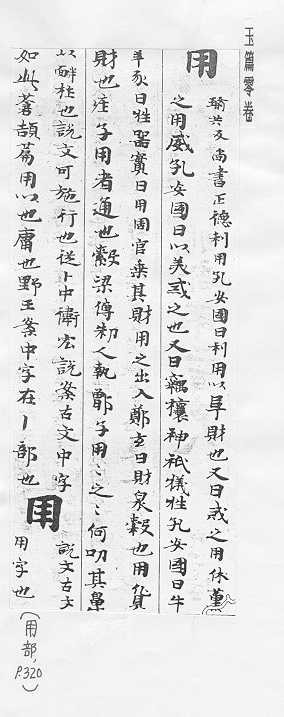 玉篇零卷
用 瑜共反尚書正德利用孔安國曰利用以阜財也又曰戒之用休董
之用威孔安國曰以美戒之也又曰竊攘神祇犧牲孔安國曰牛
羊豕曰牲器實曰用周官掌其財用之出入鄭玄曰財泉穀也用貨
財也 用者通也穀梁傳邾人執鄫子用〻之〻何叩其鼻
以衈社也說文可施行也從卜中衛宏說案古文中字
如此蒼頡篇用以也庸也野王案中字在丨部也 用 說文古文
用字也
(用部, P.320)